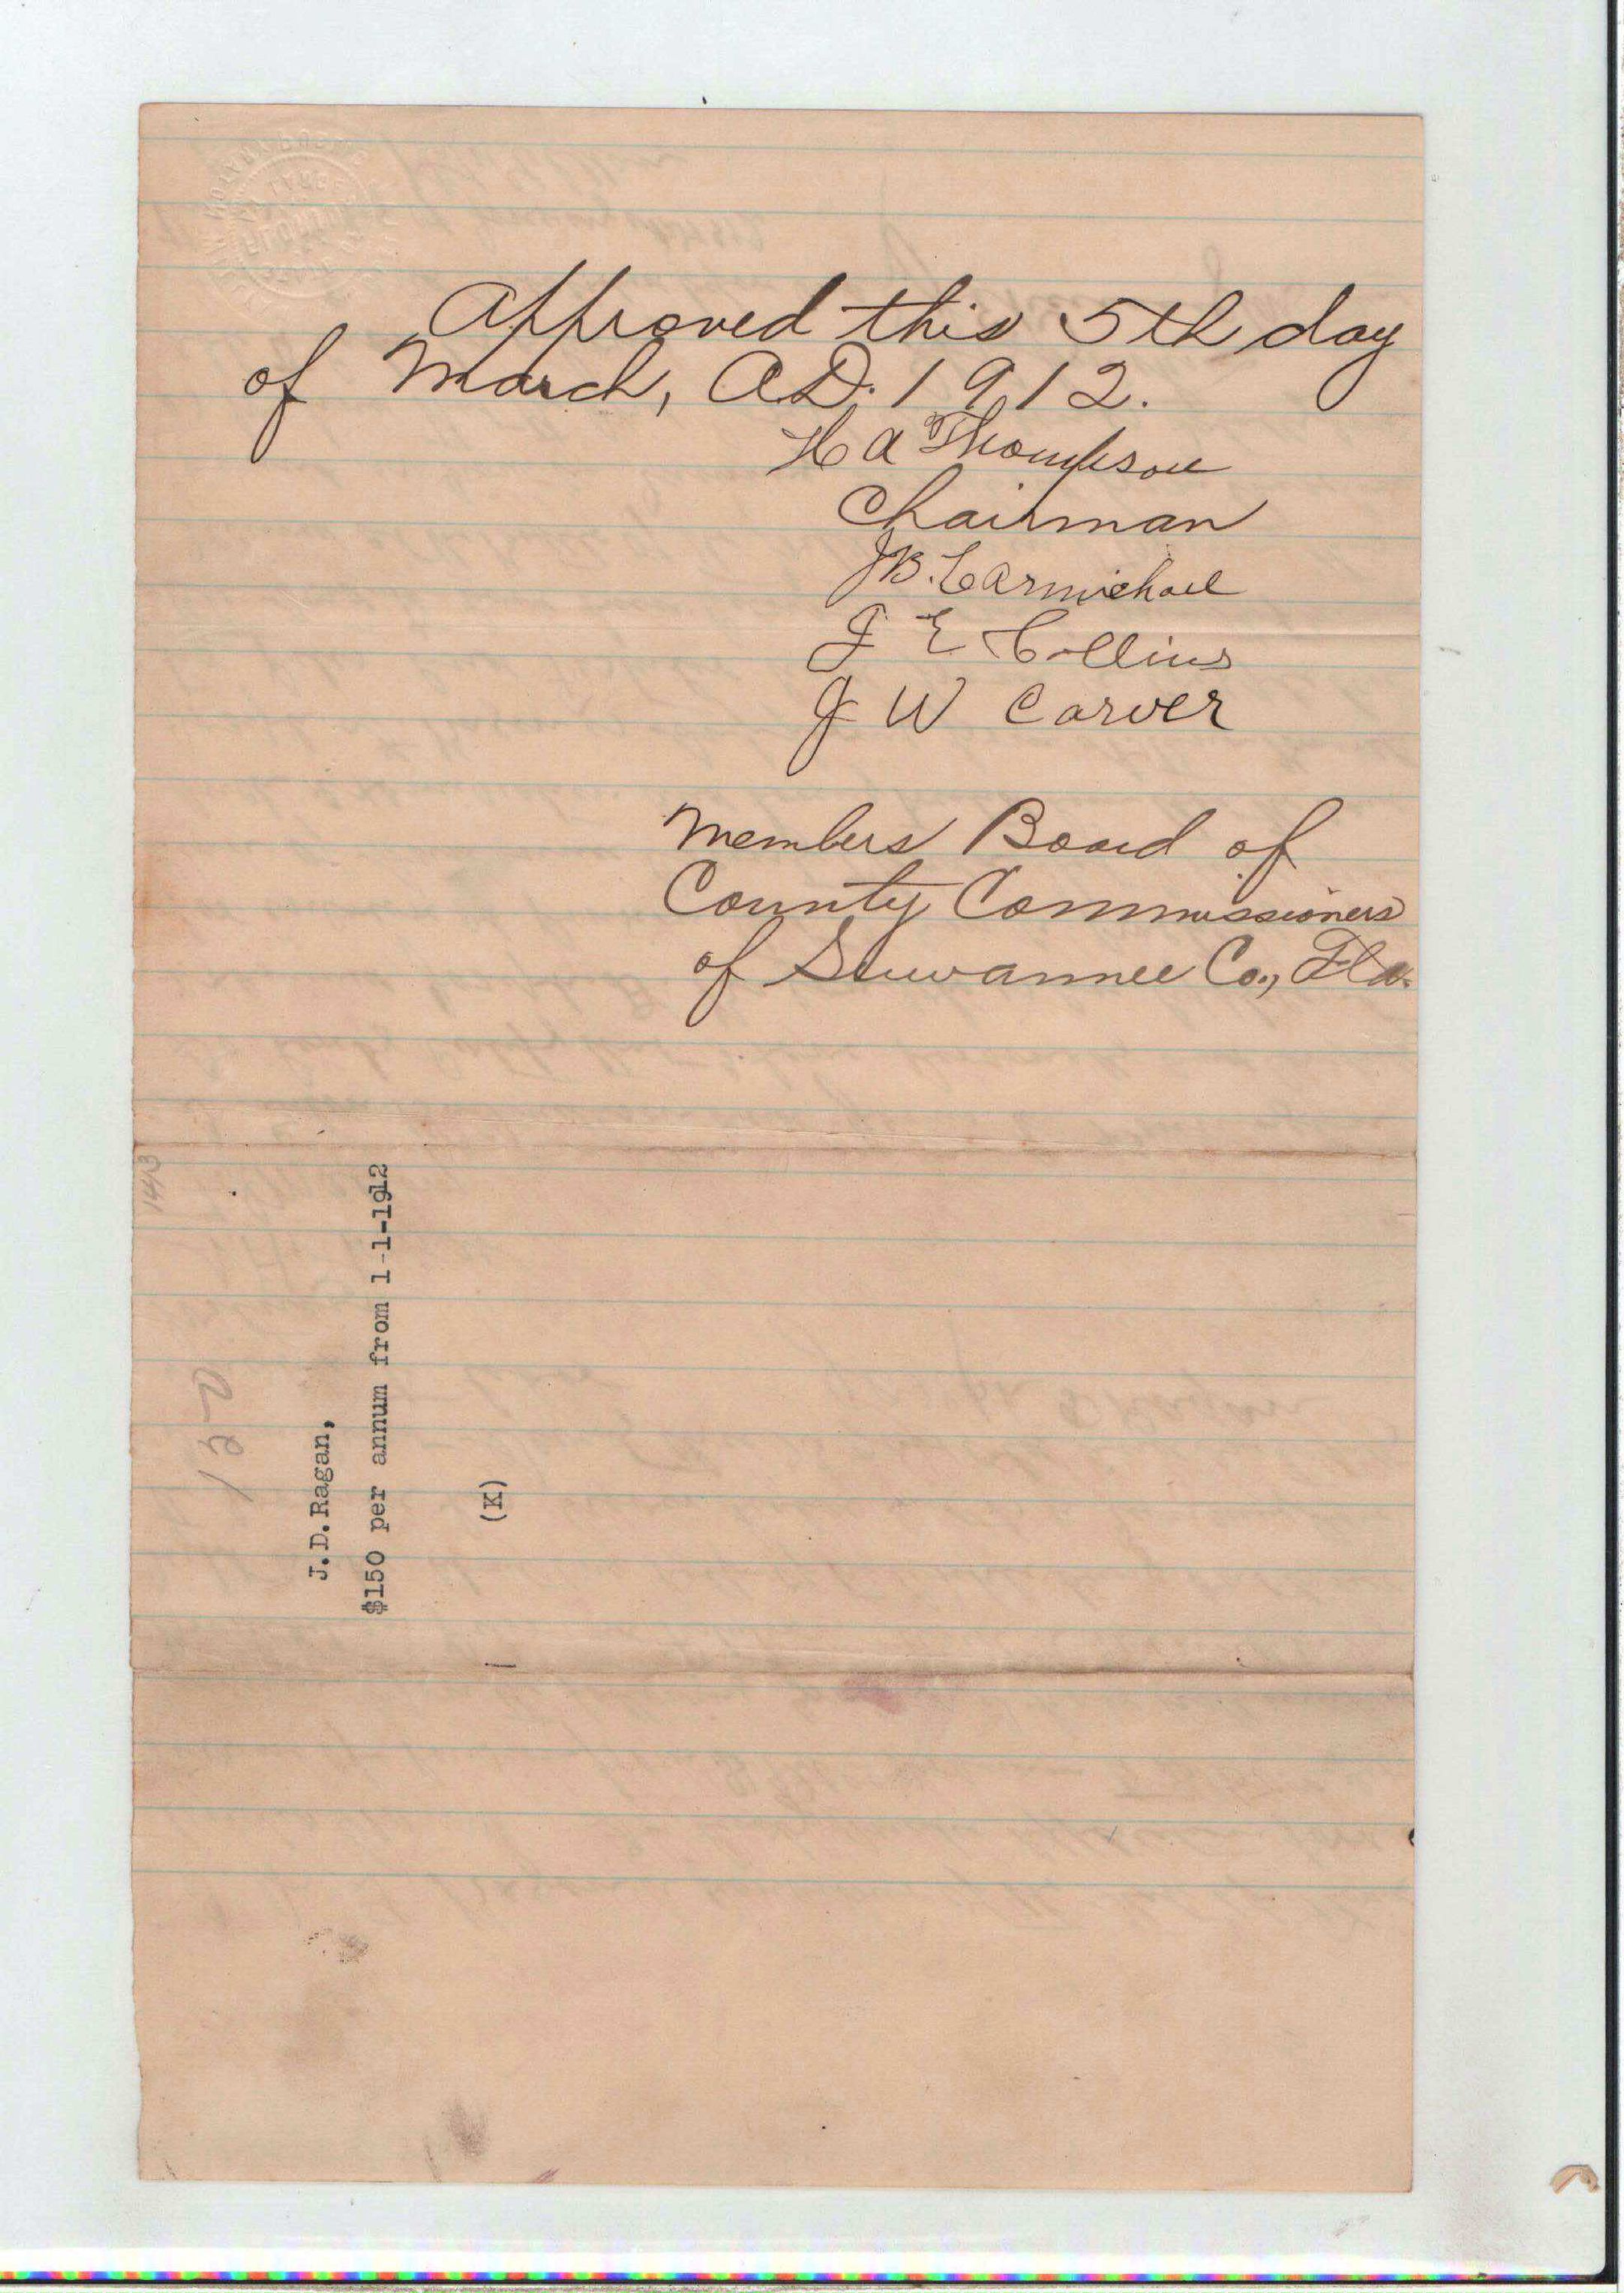 Approved this 5th day
of March, A.D. 1912.
H A Thompson
Chairman
J B. Carmichael
J E Collins
J W Carver
Members Board of
County Commissioners
of Suwannee Co., Fla.
J.D.Ragan,
$150 per annum from 1-1-1912
(K)
150